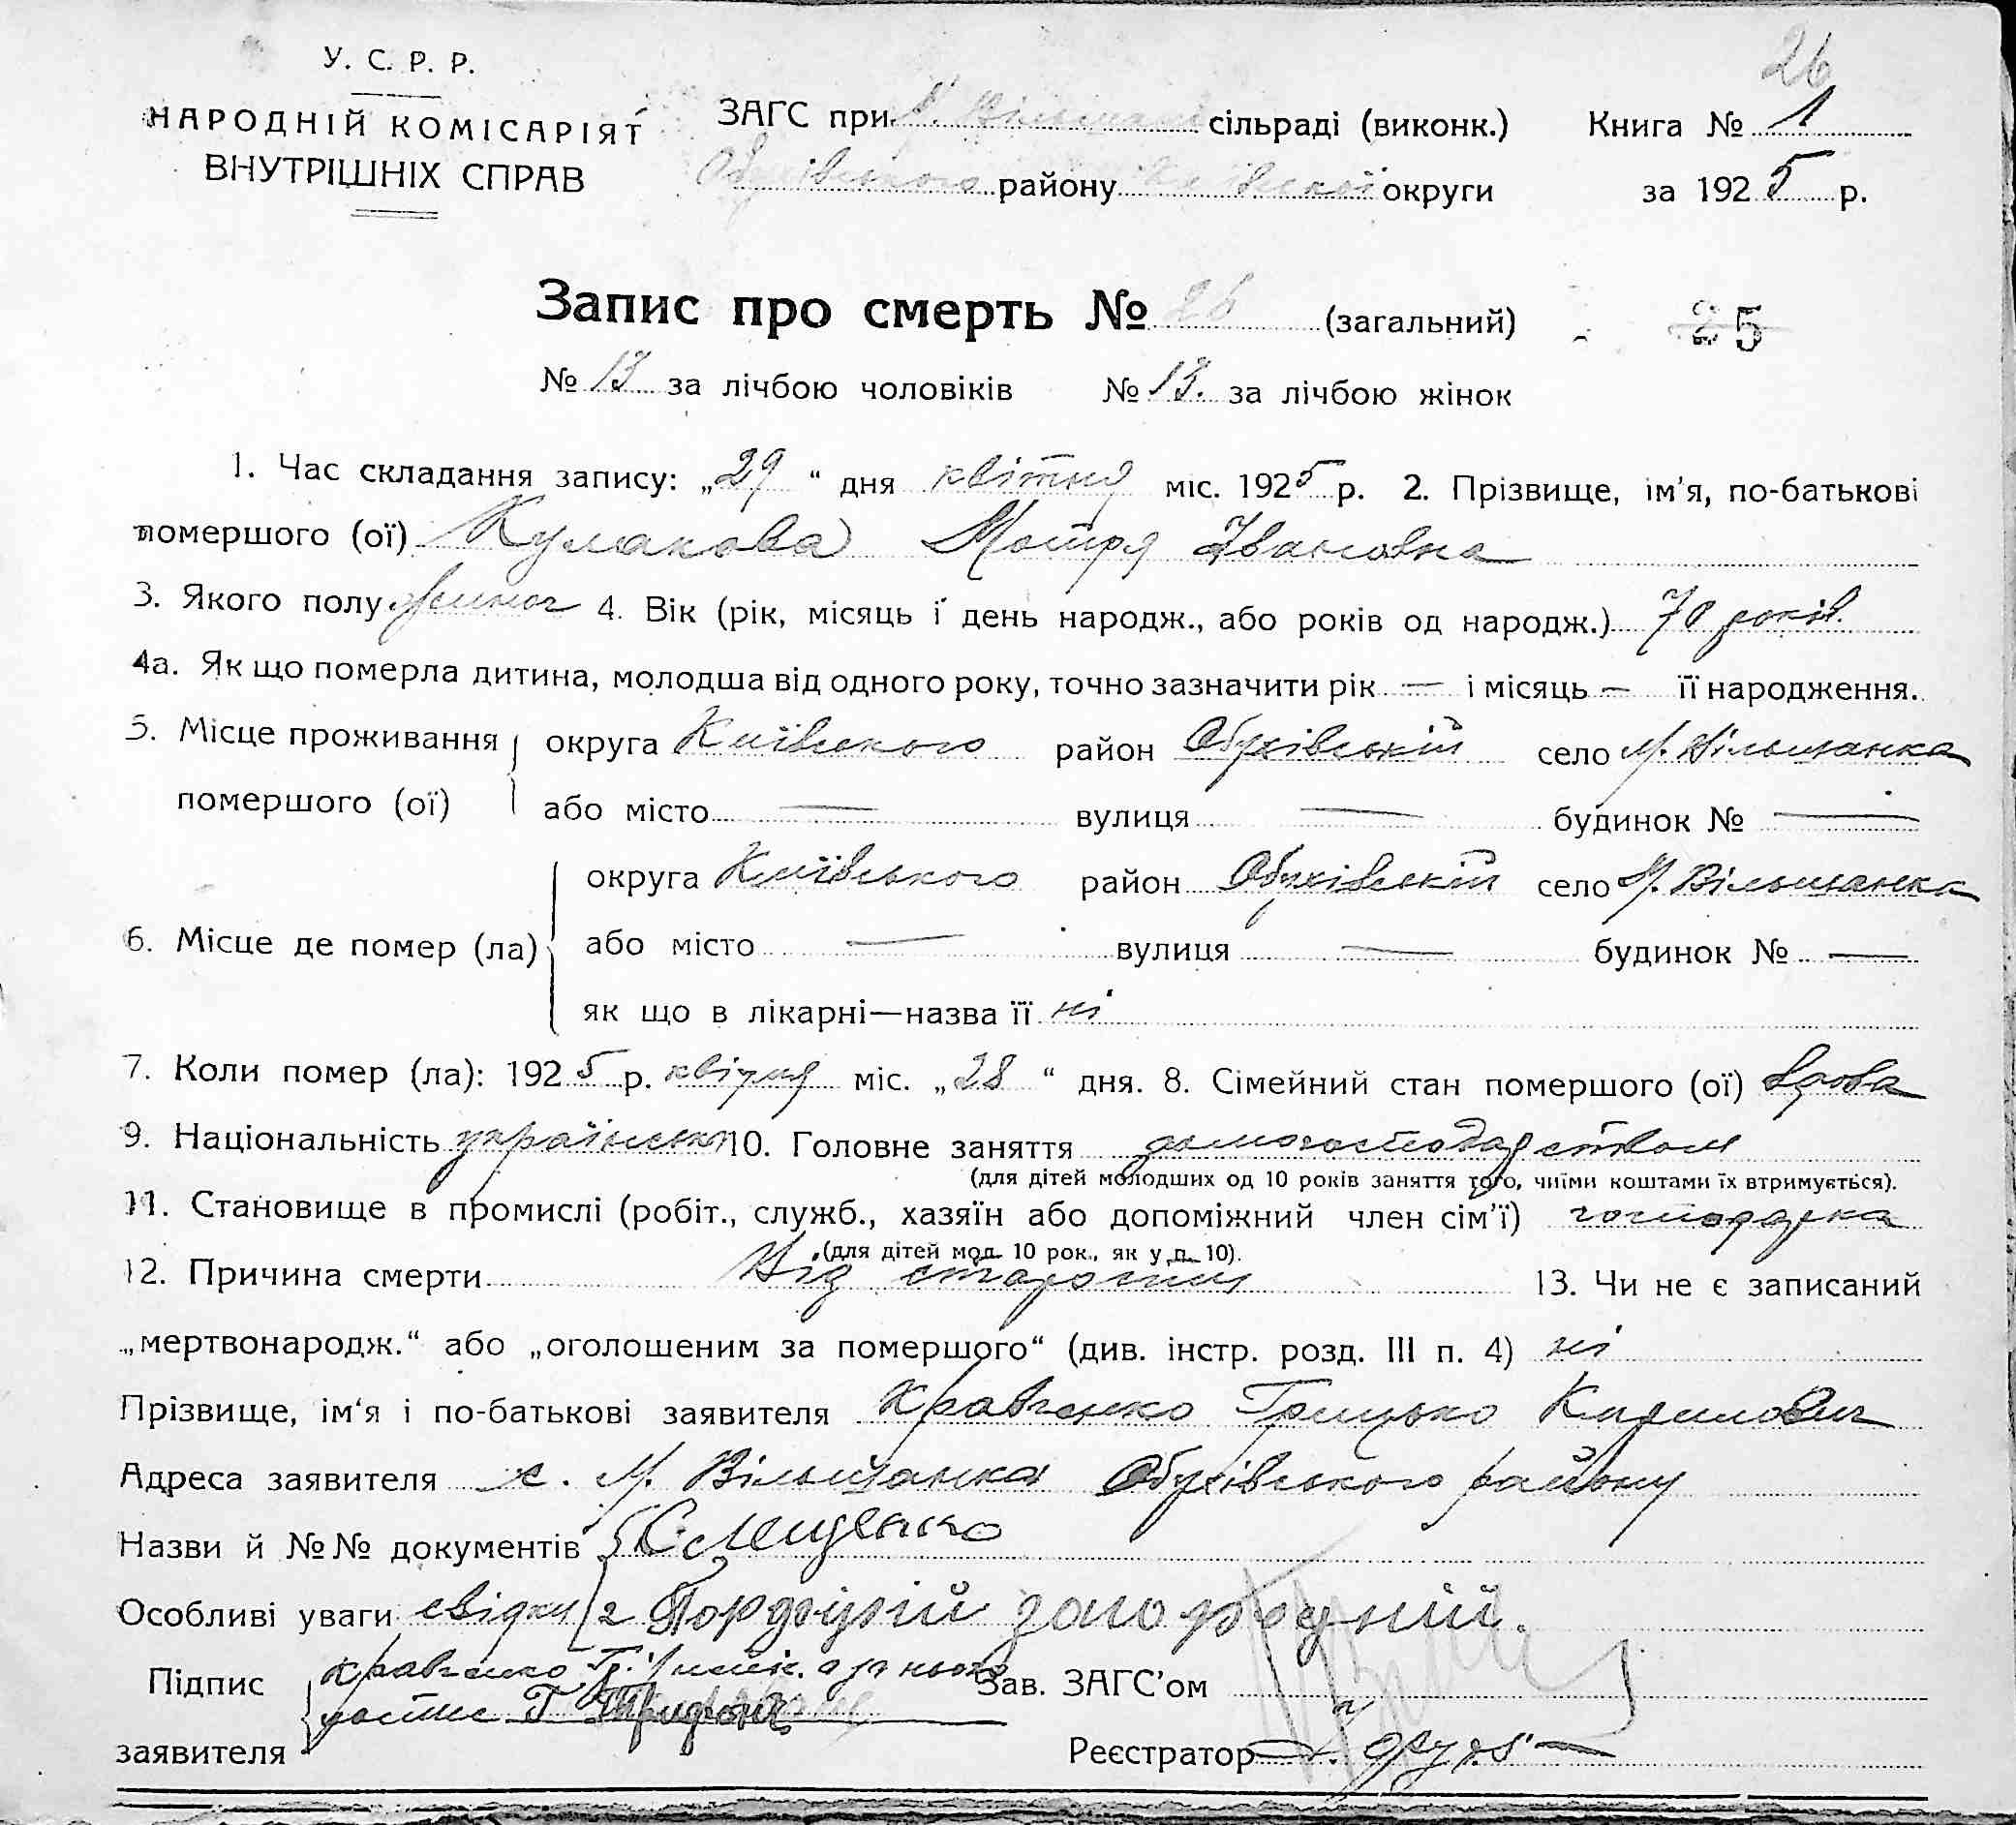 26
У. С. Р. Р.
НАРОДНІЙ КОМІСАРІЯТ
ВНУТРІШНІХ СПРАВ
ЗАГС при М. Вільшанс сільраді (виконк.) Книга № 1
Обухівського району Київської округи за 1925 р.
Запис про смерть № 26 (загальний) 25
№ 13 за лічбою чоловіків № 13. за лічбою жінок
1. Час складання запису: „29“ дня квітня міс. 1925 р. 2. Прізвище, ім'я, по-батькові
помершого (ої) Кулакова Мотря Івановна
3. Якого полу жіноч 4. Вік (рік, місяць і день народж., або років од народж.) 70 років.
4а. Як що померла дитина, молодша від одного року, точно зазначити рік — і місяць — її народження.
5. Місце проживання округа Київського район Обухівській село М. Вільшанка
помершого (ої) або місто — вулиця — будинок № —
округа Київського район Обухівській село М. Вільшанка
6. Місце де помер (ла) або місто — вулиця — будинок № —
як що в лікарні—назва її ні
7. Коли помер (ла): 1925 р. квітня міс. „28“ дня. 8. Сімейний стан помершого (ої) вдова
9. Національність українка 10. Головне заняття домогосподарством
(для дітей молодших од 10 років заняття того, чиїми коштами їх втримується).
11. Становище в промислі (робіт., служб., хазяїн або допоміжний член сім'ї) господарка
(для дітей мол. 10 рок., як у п. 10).
12. Причина смерти Від старости 13. Чи не є записаний
„мертвонародж.“ або „оголошеним за помершого“ (див. інстр. розд. III п. 4) ні
Прізвище, ім'я і по-батькові заявителя Кравченко Грицько Кирилович
Адреса заявителя х. М. Вільшанка Обухівського району
Назви й №№ документів
Особливі уваги свідки 2
Підпис Кравченко Г. Зав. ЗАГС'ом
заявителя Реєстратор